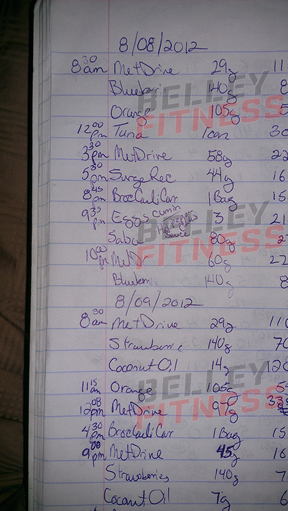 8/08/2012
8:30 am MetDrive 29g 11
Blueberri 140g 8
Orange 105g 5
12:00 pm Tuna 1can 30
3:30 pm MetDrive 58g 22
5:30 pm SurgeRec 44g 16
8:45 pm BrocCauliCar 1Bag 15
9:30 pm Eggs 3 21
Sabra 80g 2
10:00 pm MetDr 60g 22
Blueberri 140g 8
8/09/2012
8:30 am MetDrive 29g 110
Strawberries 140g 70
Coconut Oil 14g 120
11:15 am Orange 105g 5
MetDrive 97g
4:30 pm BrocCauliCar 1Bag 15
9:00 pm MetDrive 45g 16
Strawberries 140g 7
Coconut Oil 7g 6
BELLEY FITNESS
BELLEY FITNESS
BELLEY FITNESS